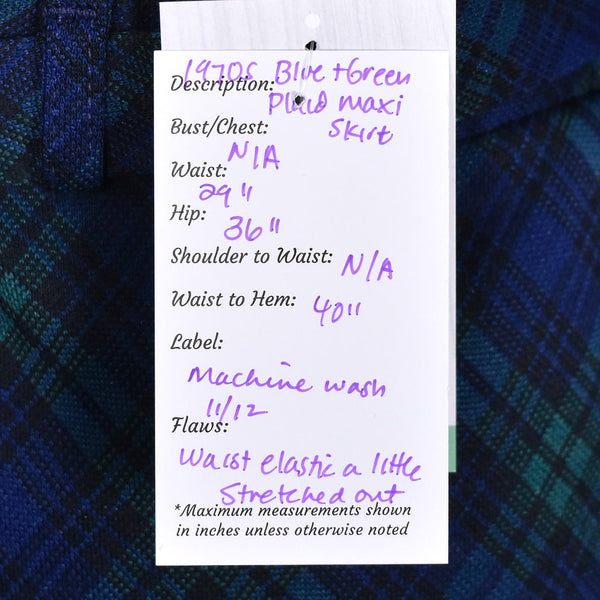 1970s Blue + Green
Description:
Plaid maxi
Bust/Chest: Skirt
N/A
Waist:
29"
Hip:
36"
Shoulder to Waist: N/A
Waist to Hem: 40"
Label:
Machine wash
11/12
Flaws:
Waist elastic a little
Stretched out
*Maximum measurements shown
in inches unless otherwise noted